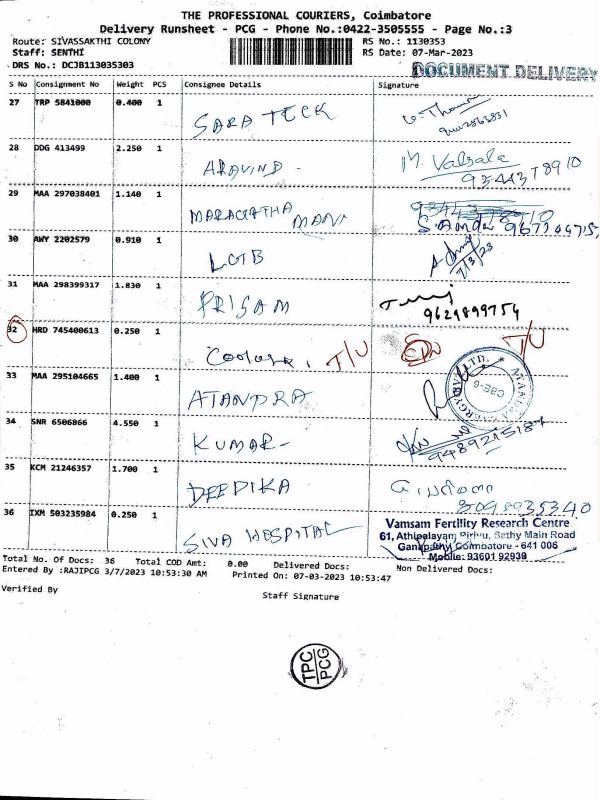 THE PROFESSIONAL COURIERS, Coimbatore
Delivery Runsheet - PCG - Phone No.:0422-3505555 - Page No.:3
Route: SIVASSAKTHI COLONY RS No.: 1130353
Staff: SENTHI RS Date: 07-Mar-2023
DRS No.: DCJB113035303 DOCUMENT DELIVERY
S No Consignment No Weight PCS Consignee Details Signature
27 TRP 5841000 0.400 1 SARA TECK
28 DDG 413499 2.250 1 ARAVIND - M. Valsala
9344378910
29 MAA 297038401 1.140 1 MARAGATHA
MANI
30 AWY 2202579 0.910 1 LGTB
7/3/23
31 MAA 298399317 1.830 1 PRISAM
9629899754
32 HRD 745400613 0.250 1 T/U T/U
33 MAA 295104665 1.400 1 ATANDRA
34 SNR 6506866 4.550 1 KUMAR-
35 KCM 21246357 1.700 1 DEEPIKA
8098935340
36 IXM 503235984 0.250 1 SIVA HOSPITAL
Vamsam Fertility Research Centre
61, Athipalayam Pirivu, Sathy Main Road
Ganapathy, Coimbatore - 641 006
Mobile: 93601 92939
Total No. Of Docs: 36 Total COD Amt: 0.00 Delivered Docs: Non Delivered Docs:
Entered By :RAJIPCG 3/7/2023 10:53:30 AM Printed On: 07-03-2023 10:53:47
Verified By Staff Signature
TPC
PCG